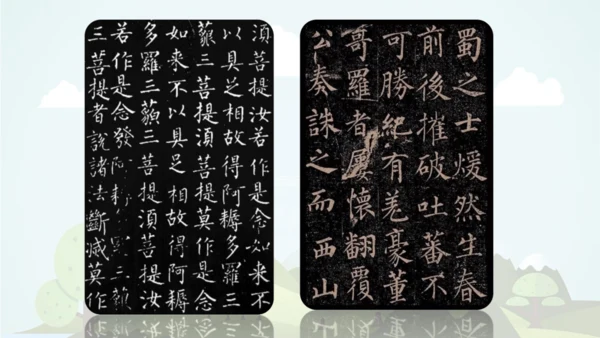 須菩提汝若作是念如来不
以具足相故得阿耨多羅三
藐三菩提須菩提莫作是念
如来不以具足相故得阿耨
多羅三藐三菩提須菩提汝
若作是念發阿耨羅三藐
三菩提者說諸法斷滅莫作
蜀之士煖然生春
前後摧破吐蕃不
可勝紀有羌豪董
哥羅者屢懷翻覆
公奏誅之而西山